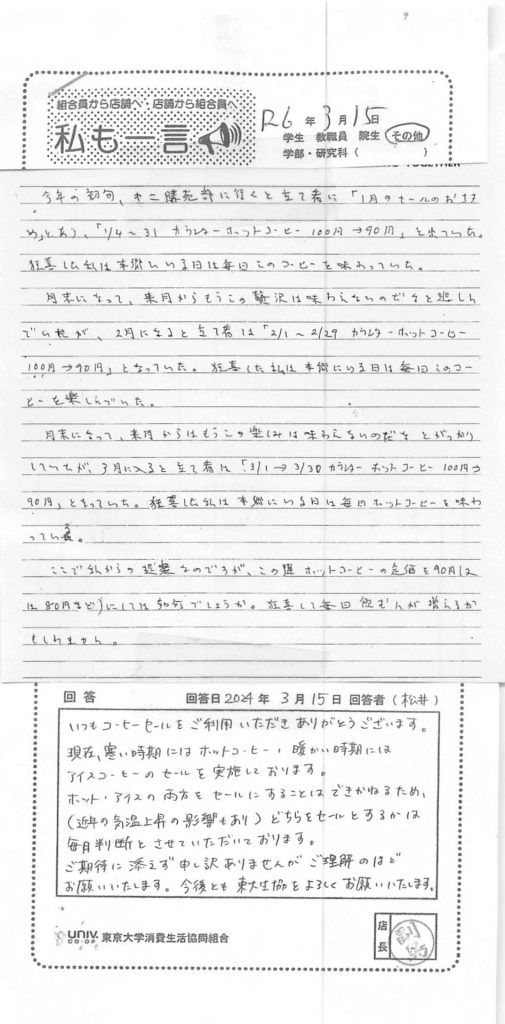 組合員から店舗へ・店舗から組合員へ
私も一言
R6年3月15日
学生 教職員 院生 その他
学部・研究科( )
今年の初旬、第二購売部に行くと立て看に「1月のセールのおすす
め」とあり、「1/4～31 カウンターホットコーヒー 100円→90円」と出ていた。
狂喜した私は本郷にいる日は毎日このコーヒーを味わっていた。
月末になって、来月からもうこの贅沢は味わえないのだなと悲しん
でいたが、2月になると立て看は「2/1～2/29 カウンターホットコーヒー
100円→90円」となっていた。狂喜した私は本郷にいる日は毎日このコー
ヒーを楽しんでいた。
月末になって、来月からはもうこの楽しみは味わえないのだなとがっかり
していたが、3月に入ると立て看は「3/1→3/30カウンターホットコーヒー100円→
90円」となっていた。狂喜した私は本郷にいる日は毎日ホットコーヒーを味わ
っている。
ここで私からの提案なのですが、この際ホットコーヒーの定価を90円(又
は80円など)にしては如何でしょうか。狂喜して毎日飲む人が増えるか
もしれません。
回答 回答日2024年3月15日 回答者(松井)
いつもコーヒーセールをご利用いただきありがとうございます。
現在、寒い時期にはホットコーヒー、暖かい時期には
アイスコーヒーのセールを実施しております。
ホット・アイスの両方をセールにすることはできかねるため、
(近年の気温上昇の影響もあり)どちらをセールとするかは
毎月判断とさせていただいております。
ご期待に添えず申し訳ありませんがご理解のほど
お願いいたします。今後とも東大生協をよろしくお願いいたします。
UNIV. CO-OP 東京大学消費生活協同組合
店長